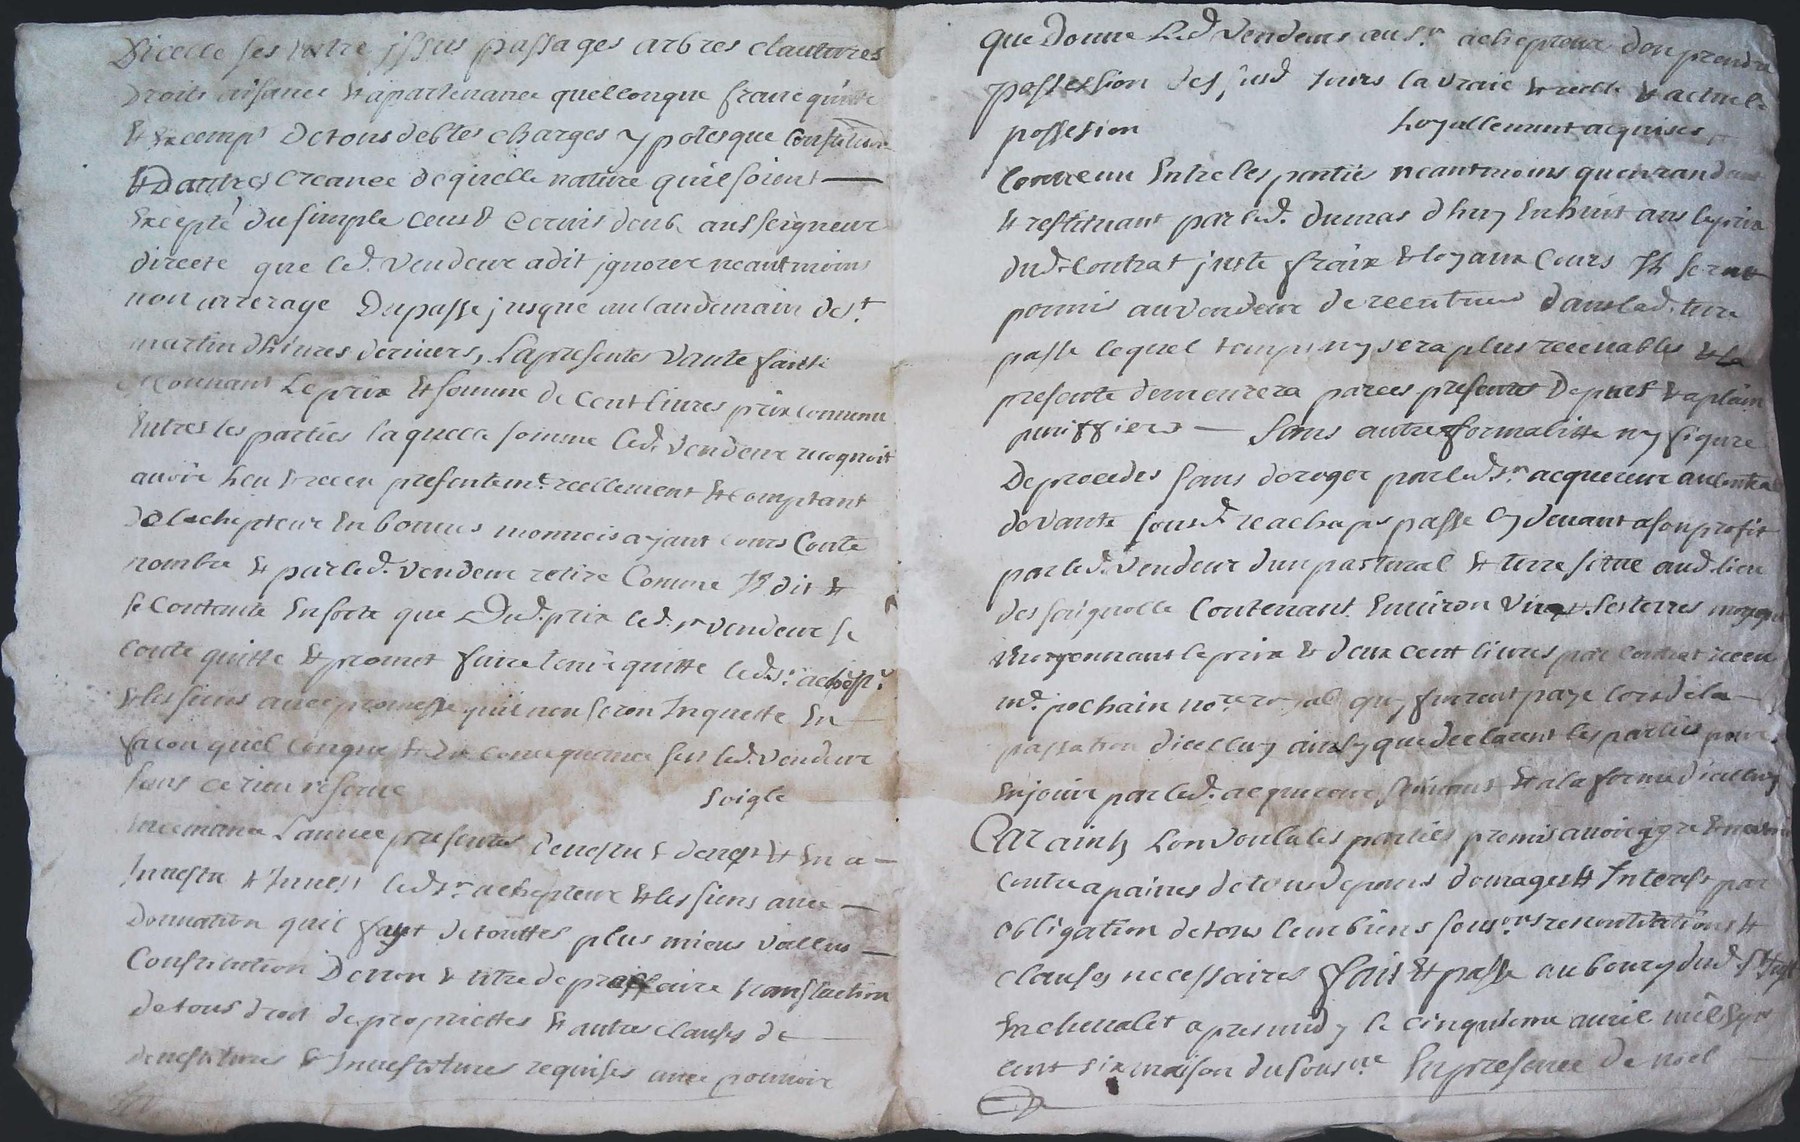 Dicelle ses entre issus passages arbres clautures
droits aisance & apartenance quelconque franc quitte
& exemp't de tous debtes charges ypoteque constitution
& dautres creance de quelle nature quil soient —
Excepté du simple cens & en deub au seigneur
directe que led. vendeur a dit ignorer neantmoins
non arrerage du passe jusque au landemain de st.
martin dhivers derniers, La presentes vante faitte
moyennant Le prix & somme de cent livres prix convenu
Entres les parties laquelle somme led. vendeur recognoit
avoir heu & receu presentemt. reellement & comptant
de lachepteur En bonnes monnois ayant cours Conte
nombre & par led. vendeur retire Comme Il dit &
se Contante En sorte que Dud. prix led. sr vendeur se
conte quitte & promet faire tenir quitte led. sr. achepr.
& les siens avec promesse quil non seron Inquette En —
facon quel conque & En consequance sest led. vendeur
sans ce rien reserve soigle —
lannee presentes devestu & & En a —
Investu & led. sr achepteur & les siens avec —
Donnation quil fayt de touttes plus mieux vallus —
Constitution De non & titre de preccaire translaction
de tous droit de propriettes & autres clauses de —
devestitures & Investitures requises avec pouvoir
que Donne Led. vendeur au sr. achepteur den prendre
possession des susd. jours la vraie & reelle & actuele
possesion Loyallement acquises
Convenu Entre les partiès neantmoins quen randant
& restituant par led. dumas dhuy En huit ans le prix
dud. Contrat juste fraix & loyaux Cours Il serat
permis au vendeur de reentrer dans lad. terre
passe lequel temps ny sera plus recevables & La
presente demeurera par ces presentes Depuis & aplain
puriffiers — sans autre formalitte ny figure
De procedes sans deroger par led. sr. acquereur au contrat
de vante sous rachapt passe cy devant a son profit
par led. vendeur dun pastural & terre sittue aud. lieu
des saignolle Contenant Environ vingt sesterres
moyennant le prix & deux cent livres par contrat receu
me. pochain nore. royal quy furent paye lors de la —
passation dicelluy ainsy que declarent les parties pour
En jouir par led. acquereur suivant & a la forme dicelluy
Car ainsy Lon voulu les parties promis avoir agre
contre a paines de tous depans domages & Interest par
obligation de tous leur biens sous. renontiations &
clauses necessaires fait & passe au bourg dud. st Just
En chevalet apres midy le cinquieme avril mil sept
cent six maison du sousne. En presence de noel —